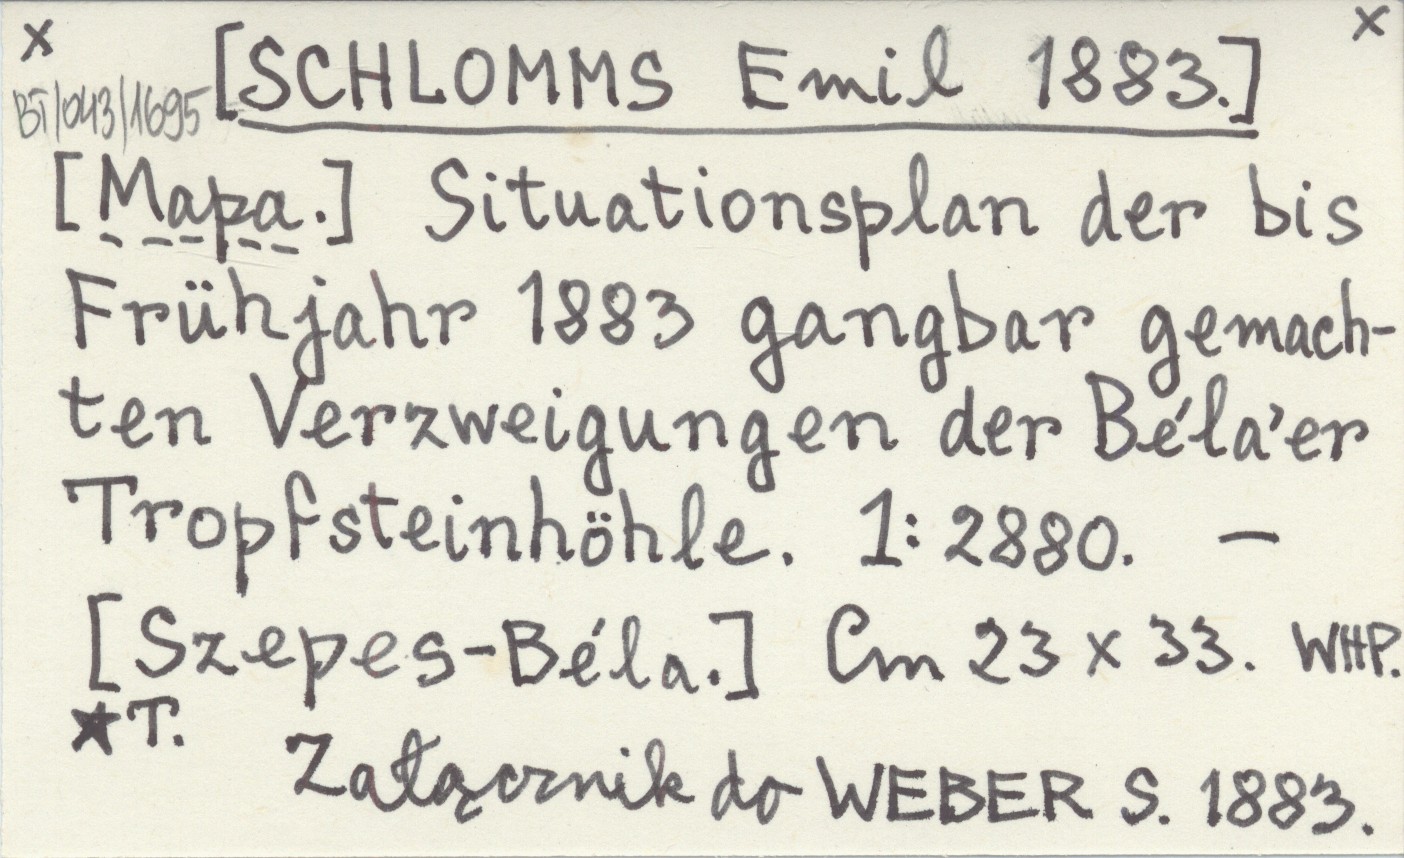 x x
BT/043/1695 [SCHLOMMS Emil 1883.]
[Mapa.] Situationsplan der bis
Frühjahr 1883 gangbar gemach-
ten Verzweigungen der Béla'er
Tropfsteinhöhle. 1:2880. —
[Szepes-Béla.] Cm 23 x 33. WHP.
★T.
Załącznik do WEBER S. 1883.